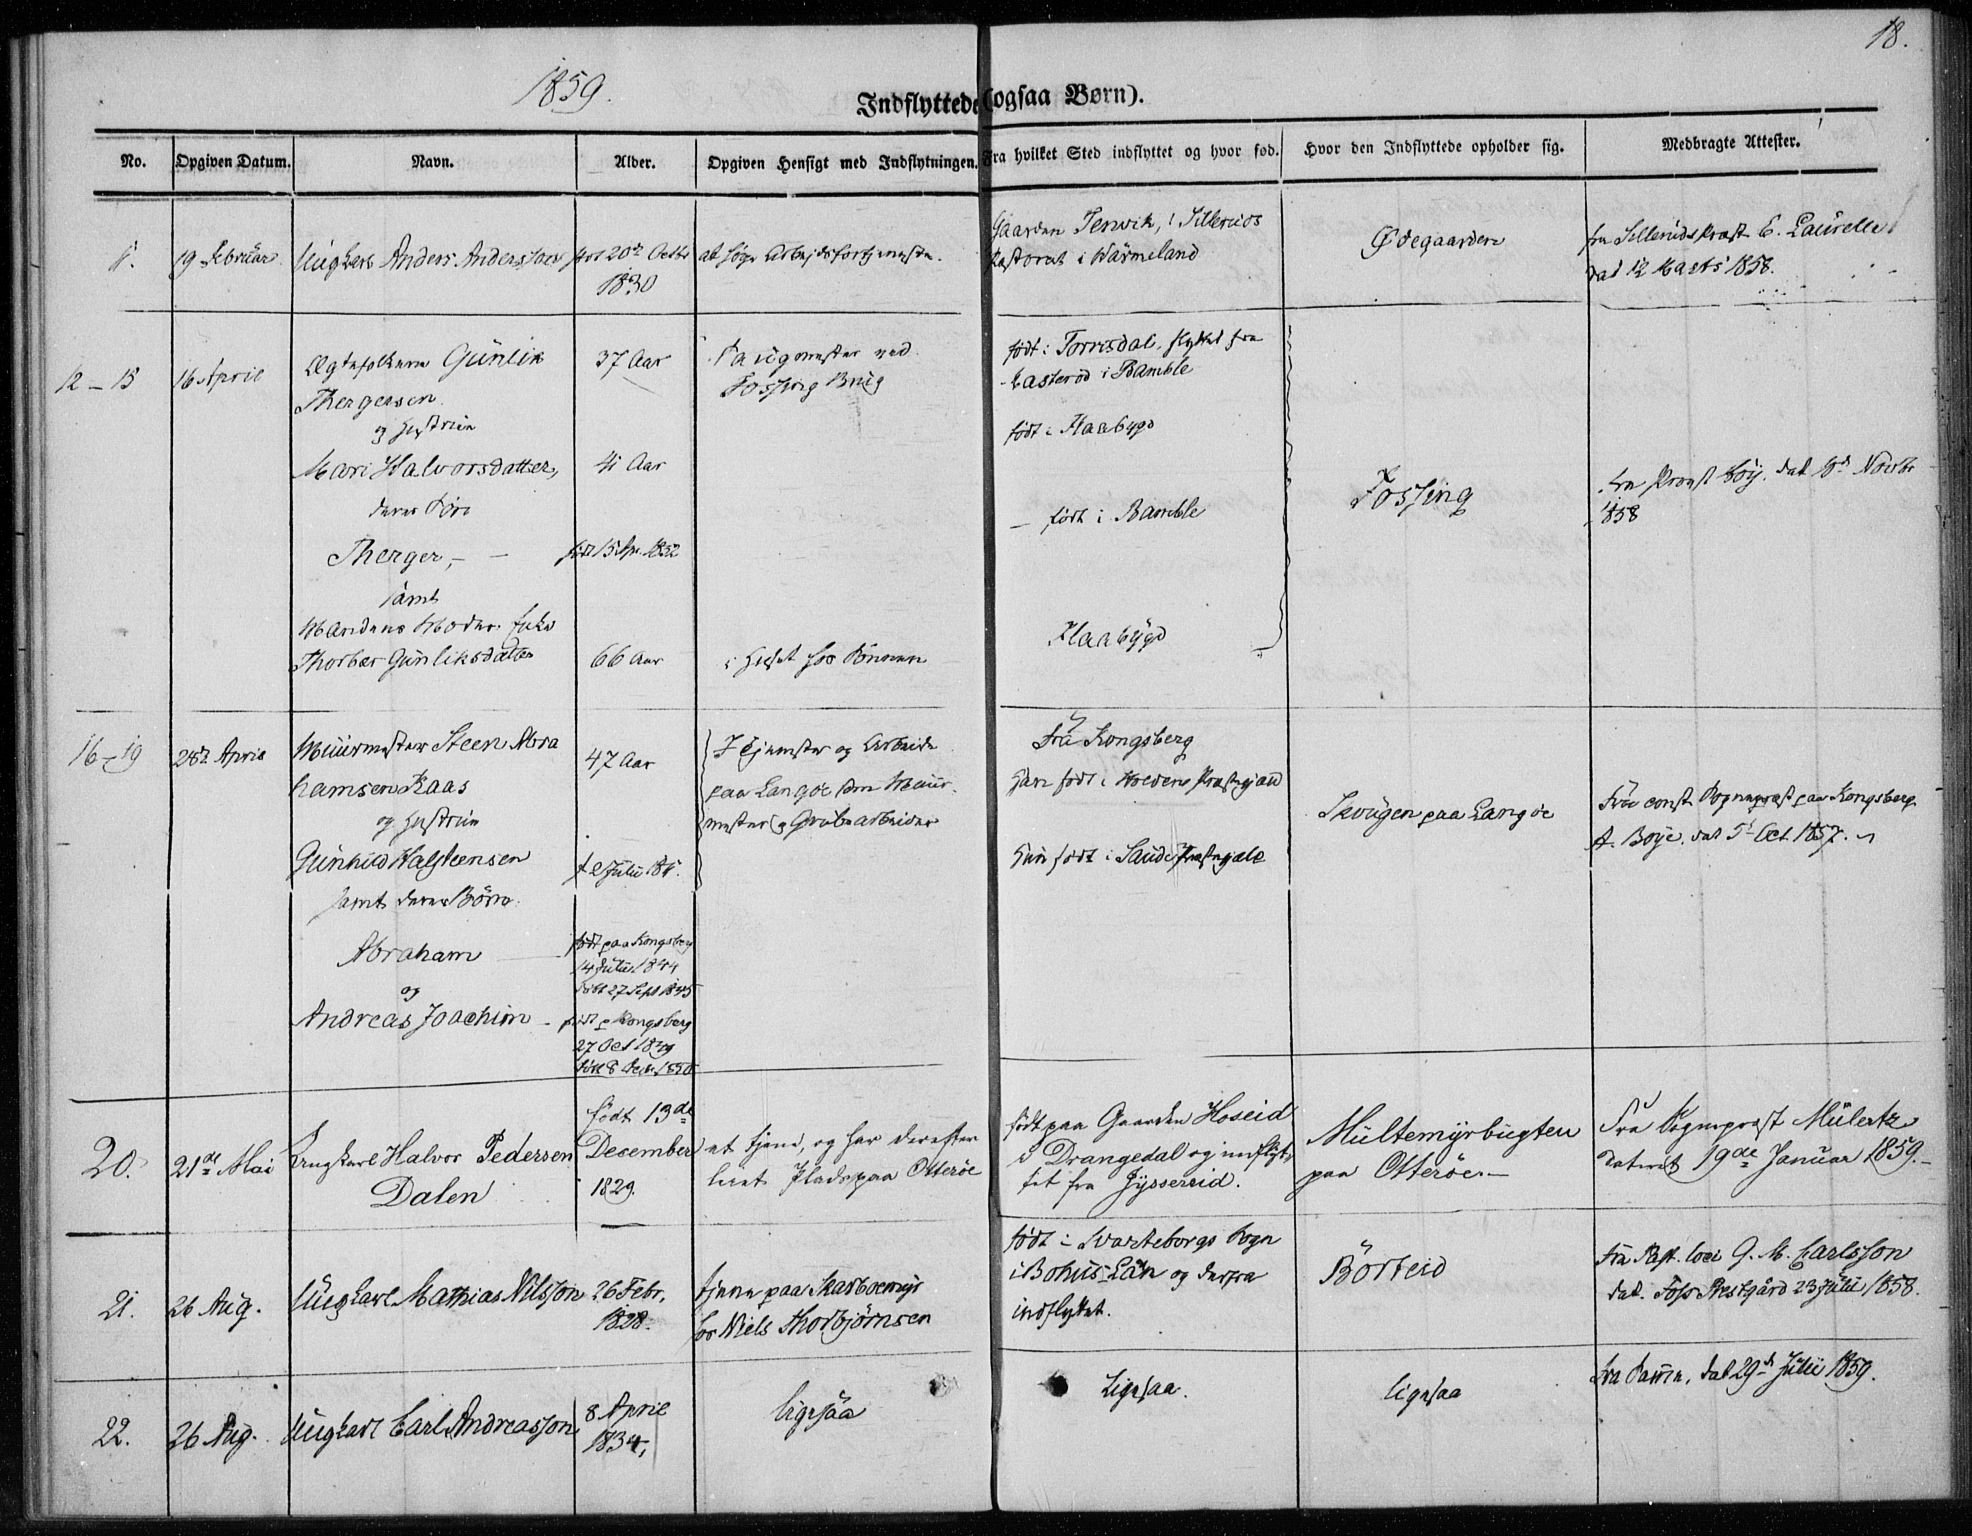 18.
1859.
Indflyttede (ogsaa Børn).
No. Opgiven Datum. Navn. Alder. Opgiven Hensigt med Indflytningen. Fra hvilket Sted indflyttet og hvor fød. Hvor den Indflyttede opholder sig. Medbragte Attester.
11. 19 Februar Ungkarl Anders Andersson født 20de Octbr 1830 at søge Arbeidsfortjeneste.
Gaarden Tenvik, i Sillerüds
Pastorat i Wärmeland
Ødegaarden
fra Sillerüds Præst E. Laurelli
dat 12 Marts 1858.
12 – 15 16 April
Ægtefolkene Günlik
Thergersen
og Hustrüe
Mari Halvorsdatter,
deres Søn
Therger, –
samt
Mandens Moder. Enke
Thorbør Günliksdatter
37 Aar
41 Aar
født 15 Apr. 1852
66 Aar
Saugmester ved
Fossing Brüg
i Huset hos Sønnen
født i Torrisdal, flyttet fra
Hasterød i Bamble
født i Flaabygd
– født i Bamble
Flaabÿgd
Fossing
fra Provst Böÿ. dat Novbr
1858
16–19 28de April
Müürmester Steen Abra
hamsen Kaas
og Hustrüe
Günhild Halsteensen
samt deres Børn
Abraham
og
Andreas Joachim –
47 Aar
født paa Kongsberg
14 Julii 1844
døbt 27 Sept 1845
født p Kongsberg
27 Oct 1849
døbt 8 1850
I Tjeneste og Arbeide
paa Langøe som Müür-
mester og Grübearbeider
Fra Kongsberg
Han født i Holdens Præstegjeld
Hün født i Saude Præstegjeld
Skougen paa Langøe
Fra const. Sognepræst paa Kongsberg
A. Boye, dat 5t Oct 1857.
20. 21de Mai
Ungkarl Halvor Pedersen
Dalen
født 13de
December
1829.
at tjene, og har derefter
leiet Plads paa Otterøe
født paa Gaarden Hoseid
i Drangedal og indflyt-
tet fra Gjsserød.
Mültemÿrbugten
paa Otterøe. –
Fra Sognepræst Mülertz
dateret 19de Januar 1859. –
21. 26 Aug.
Ungkarl Mathias Nilsson
26 Febr.
1828.
tjene paa Skarboemyr
hos Niels Thorbjörnsen
født i Svarteborgs Sogn
i Bohüs Län og derfra
indflyttet.
Börteid
Fra Past. loci G. M. Carlsson
dat. Foss Prestgård 23 Jülii 1858.
22. 26 Aug.
Ungkarl Carl Andreasson
8 April
1834,
ligesaa
Ligesaa.
ligesaa
fra Samme, dat 29de Jülii 1859.